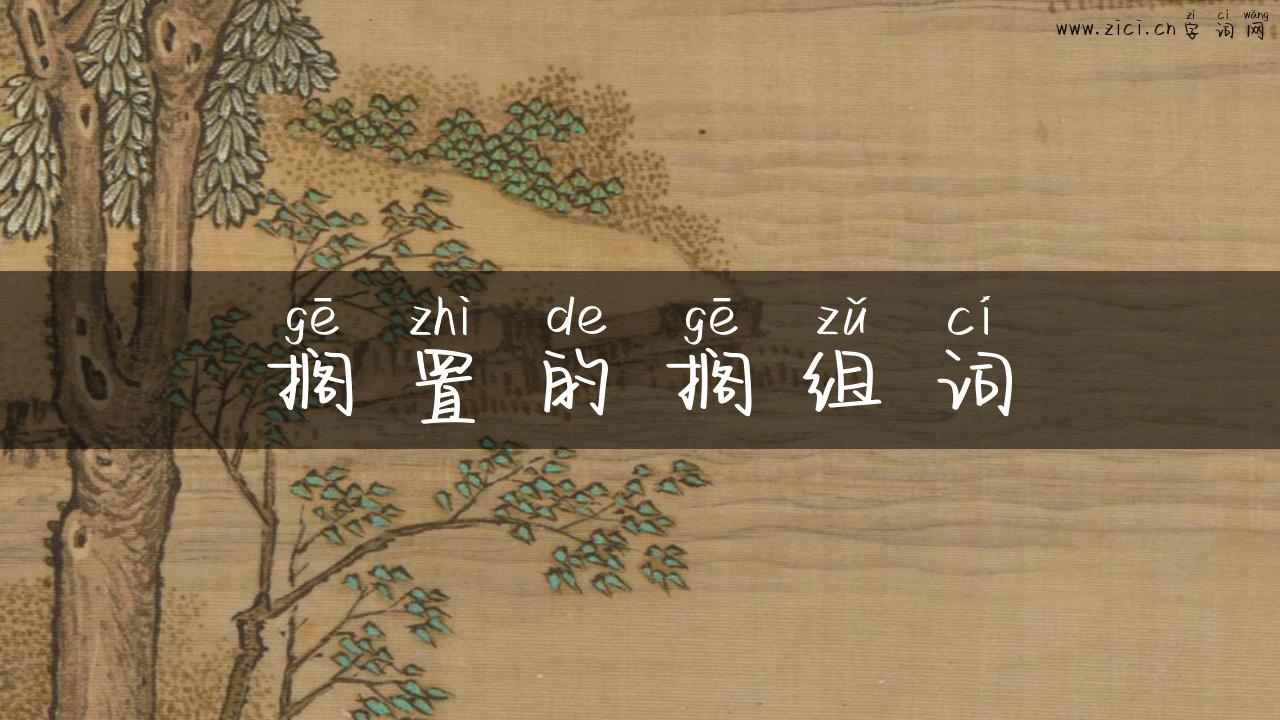 zì cí wǎng
www.zici.cn 字词网
gē zhì de gē zǔ cí
搁置的搁组词